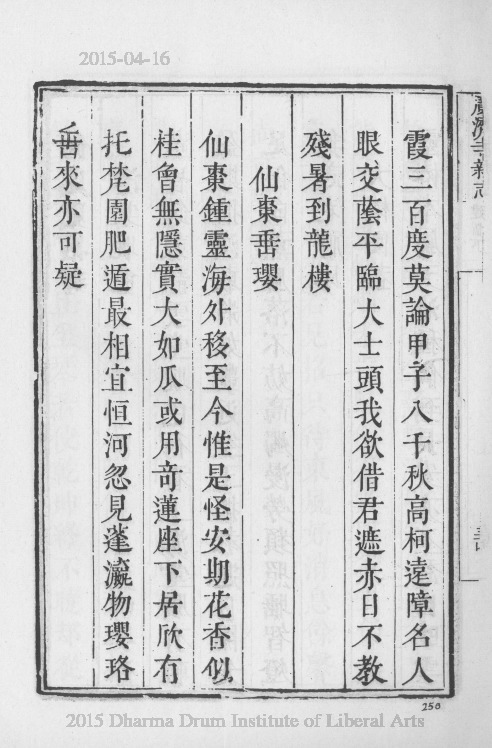 2015-04-16
廣濟寺新志
霞三百度莫論甲子八千秋高柯遠障名人
眼交蔭平臨大士頭我欲借君遮赤日不教
殘暑到龍樓
仙棗垂瓔
仙棗鍾靈海外移至今惟是怪安期花香似
桂曾無隱實大如瓜或用竒蓮座下居欣有
托梵園肥遁最相宜恒河忽見蓬瀛物瓔珞
垂來亦可疑
250
2015 Dharma Drum Institute of Liberal Arts